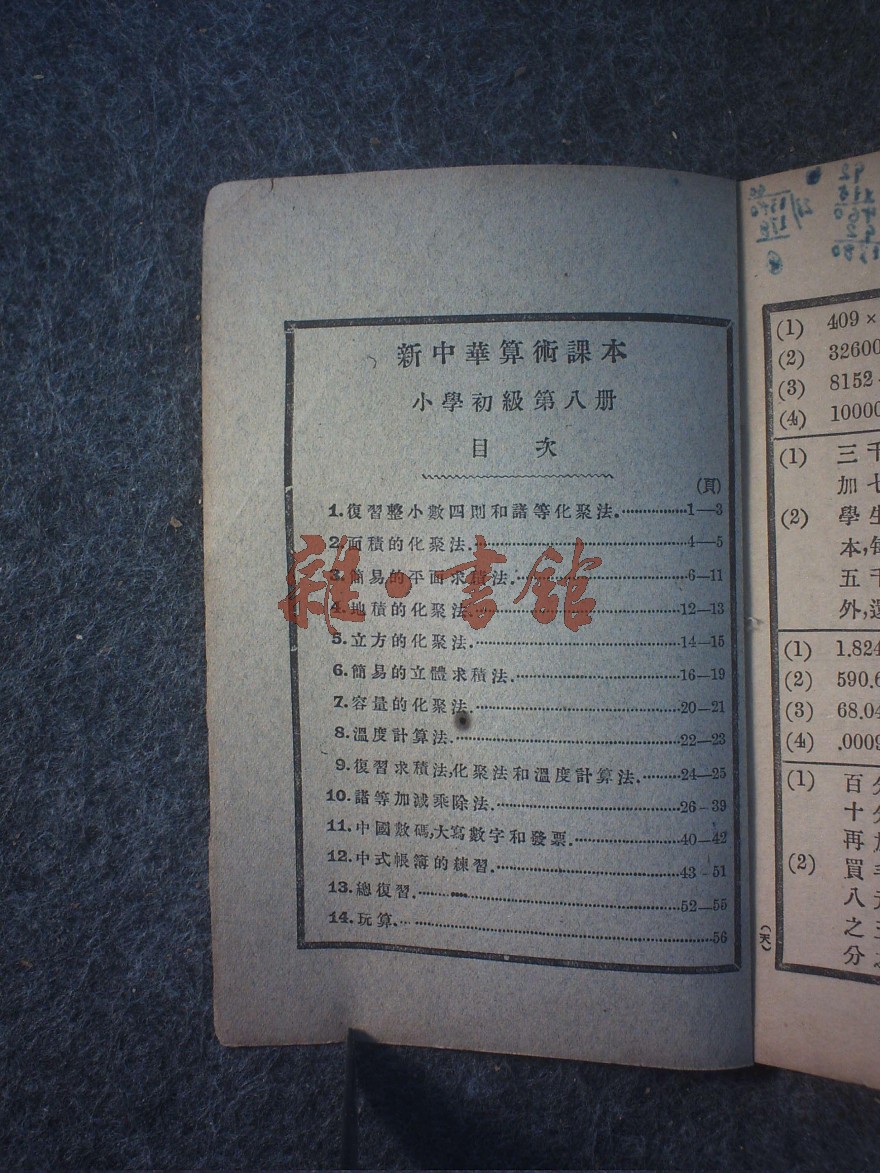 新中華算術課本
小學初級第八册
目 次
(頁)
1.復習整小數四則和諸等化聚法.················1—3
2.面積的化聚法.································4—5
3.簡易的平面求積法.··························6—11
4.地積的化聚法.······························12—13
5.立方的化聚法.······························14—15
6.簡易的立體求積法.························16—19
7.容量的化聚法.······························20—21
8.溫度計算法.································22—23
9.復習求積法,化聚法和溫度計算法.·······24—25
10.諸等加減乘除法.··························26-39
11.中國數碼,大寫數字和發票.···············40—42
12.中式帳簿的練習.··························43-51
13.總復習.····································52—55
14.玩算.········································56
雜·書館
(1) 409×
(2) 32600
(3) 8152
(4) 10000
(1) 三千
加七
(2) 學生
本,每
五千
外,還
(1) 1.824
(2) 590.6
(3) 68.04
(4) .0009
(1) 百分
十分
再加
(2) 買
八元
之
分之
(天)